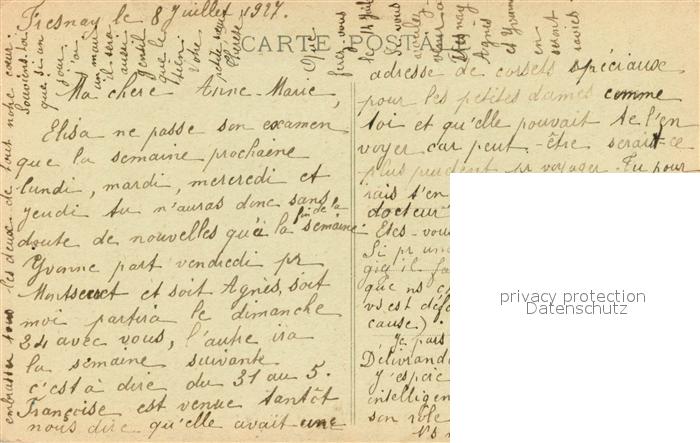 Fresnay le 8 Juillet 1927.
CARTE POSTALE
Ma chère Anne-Marie,
Elisa ne passe son examen
que la semaine prochaine
lundi, mardi, mercredi et
jeudi tu n'auras donc sans
doute de nouvelles qu'à la fin de la semaine.
Yvonne part vendredi pr
Montsecret et soit Agnès, soit
moi partira le dimanche
24 avec vous, l'autre ira
la semaine suivante
c'est à dire du 31 au 5.
Françoise est venue tantôt
nous dire qu'elle avait une
adresse de corsets spéciaux
pour les petites dames comme
toi et qu'elle pouvait te l'en
voyer car peut-être serait-ce
plus prudent pr voyager. Tu pour
rais t'en
docteur
Etes-vous
Si pr un
que ns
vs est
cause).
Je pars
Délivrande
j'espère
intelligen
son rôle
Que
ferez-vous
le 14
Si vous
vouliez
venir à
Fresnay
Agnès
et Yvonne
en
seront
ravies
embrasser tous les deux de tout notre cœur.
Souviens-toi
que si un
jour
un mari
il sera
aussi
gentil
que le
tien.
Votre
petite sœur
privacy protection
Datenschutz